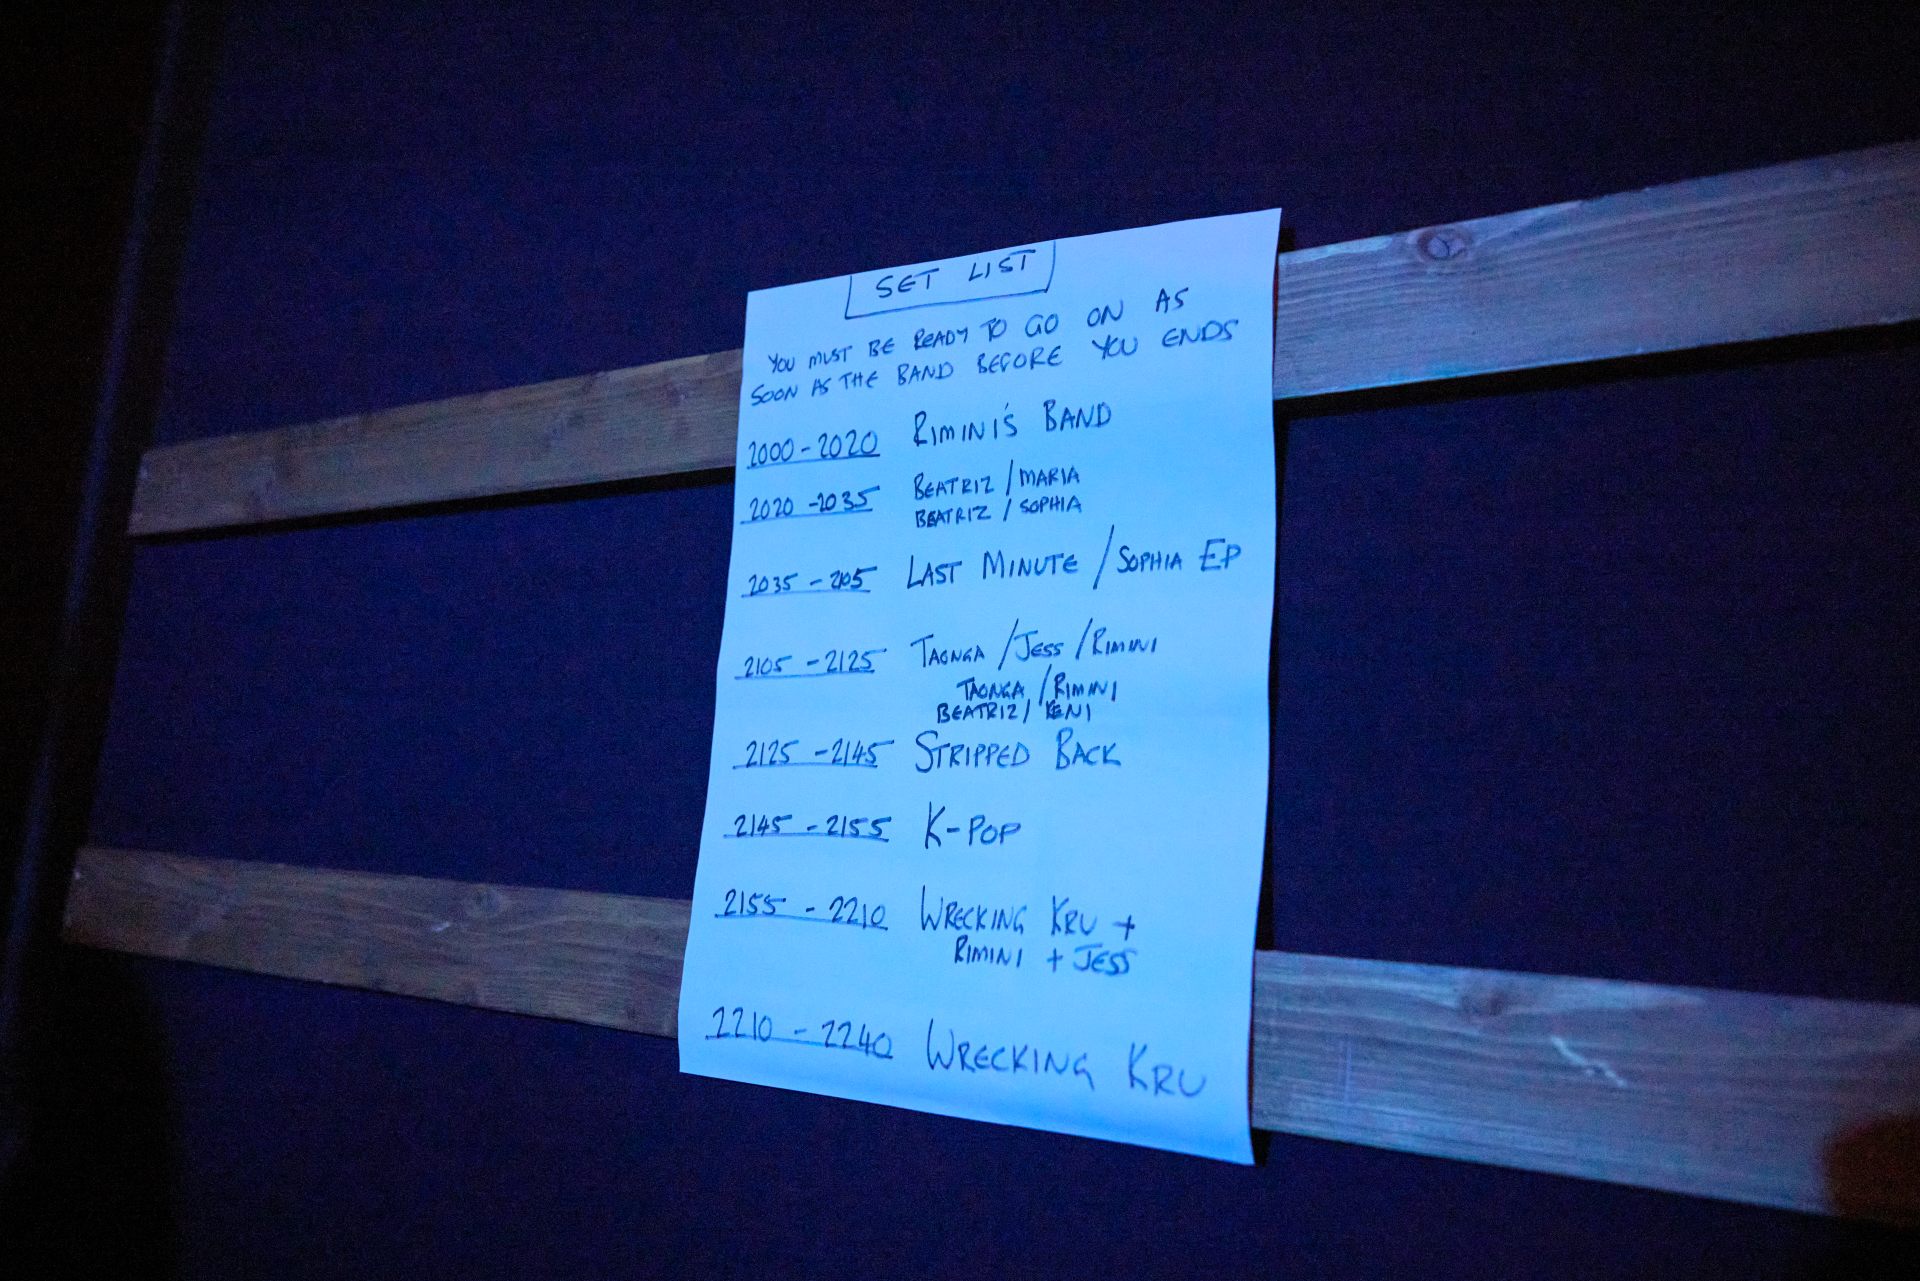 SET LIST
YOU MUST BE READY TO GO ON AS
SOON AS THE BAND BEFORE YOU ENDS
2000 - 2020 RIMINI'S BAND
2020 - 2035 BEATRIZ / MARIA
BEATRIZ / SOPHIA
2035 - 2105 LAST MINUTE / SOPHIA EP
2105 - 2125 TAONGA / JESS / RIMINI
TAONGA / RIMINI
BEATRIZ / KENI
2125 - 2145 STRIPPED BACK
2145 - 2155 K-POP
2155 - 2210 WRECKING KRU +
RIMINI + JESS
2210 - 2240 WRECKING KRU